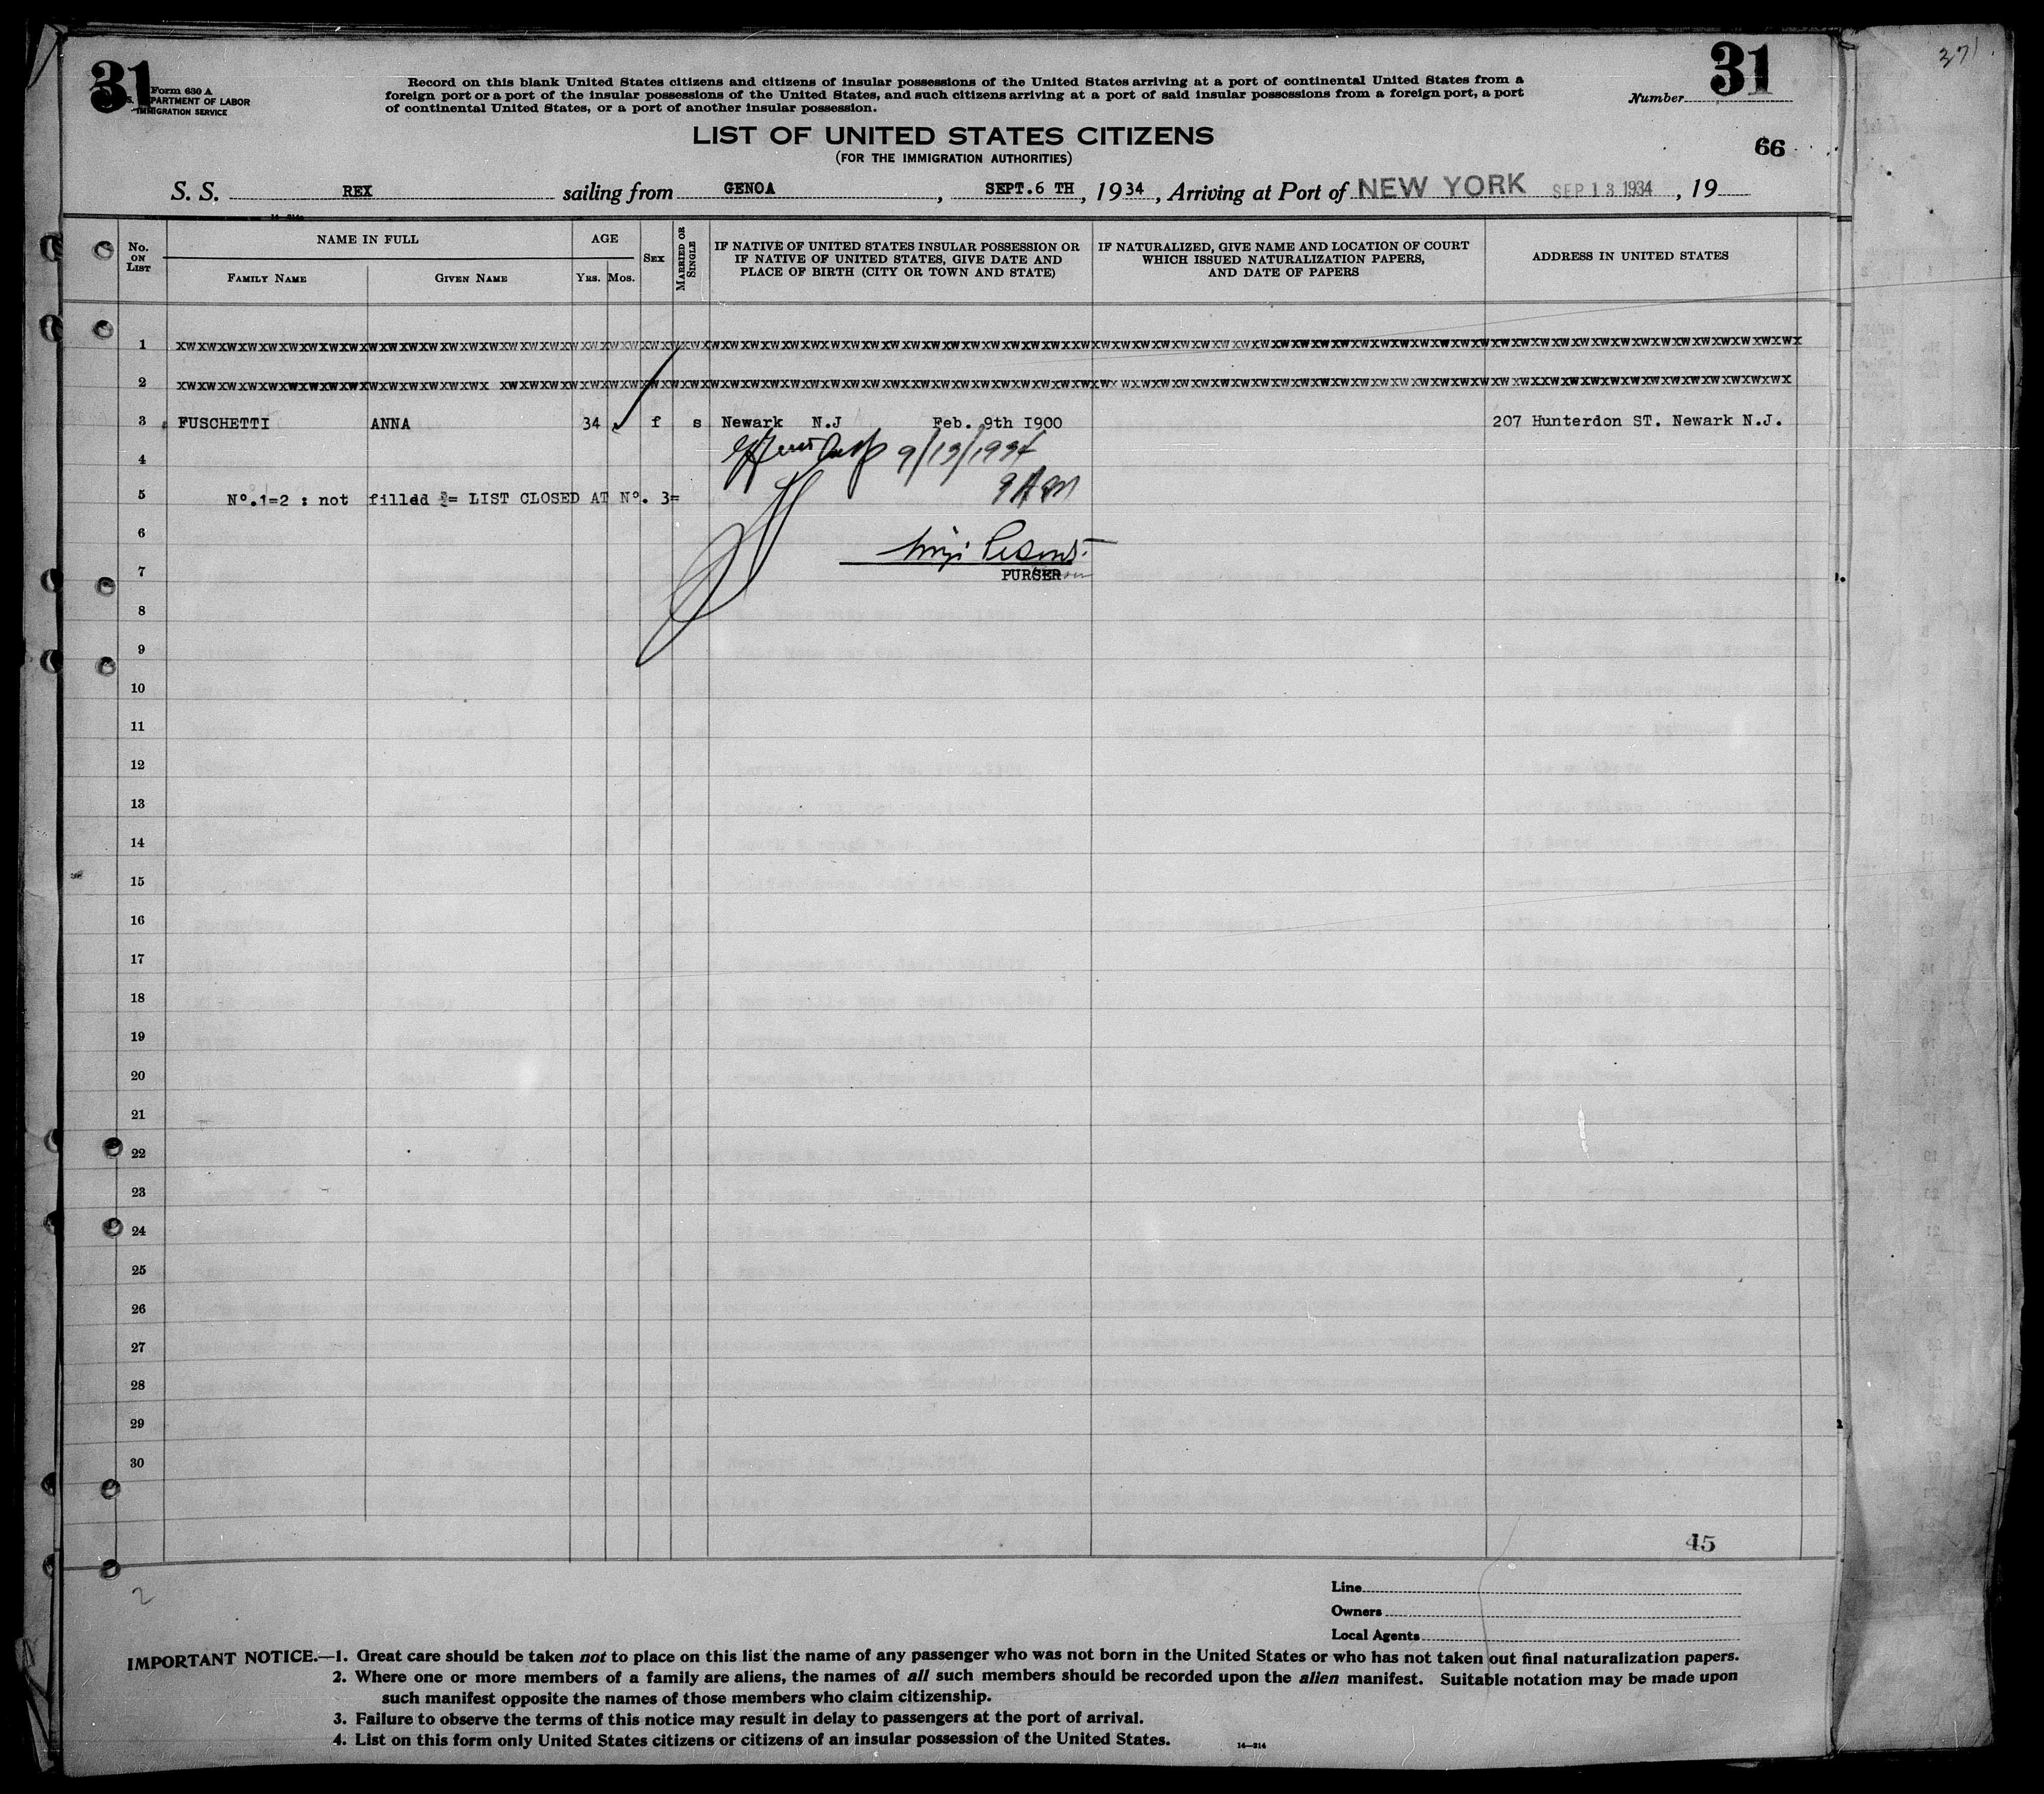 31
Form 630 A
U. S. DEPARTMENT OF LABOR
IMMIGRATION SERVICE
Record on this blank United States citizens and citizens of insular possessions of the United States arriving at a port of continental United States from a
foreign port or a port of the insular possessions of the United States, and such citizens arriving at a port of said insular possessions from a foreign port, a port
of continental United States, or a port of another insular possession.
Number 31
371
66
LIST OF UNITED STATES CITIZENS
(FOR THE IMMIGRATION AUTHORITIES)
S. S. REX sailing from GENOA, SEPT.6 TH, 1934, Arriving at Port of NEW YORK SEP 13 1934, 19
No. ON LIST
NAME IN FULL
FAMILY NAME
GIVEN NAME
AGE
YRS. MOS.
SEX
MARRIED OR SINGLE
IF NATIVE OF UNITED STATES INSULAR POSSESSION OR
IF NATIVE OF UNITED STATES, GIVE DATE AND
PLACE OF BIRTH (CITY OR TOWN AND STATE)
IF NATURALIZED, GIVE NAME AND LOCATION OF COURT
WHICH ISSUED NATURALIZATION PAPERS,
AND DATE OF PAPERS
ADDRESS IN UNITED STATES
1
2
3 FUSCHETTI ANNA 34 f s Newark N.J Feb. 9th 1900 207 Hunterdon ST. Newark N.J.
4 9/13/1934
9 AM
5 Nº.1=2 : not filled = LIST CLOSED AT Nº. 3=
6
7 PURSER
8
9
10
11
12
13
14
15
16
17
18
19
20
21
22
23
24
25
26
27
28
29
30
45
2
Line
Owners
Local Agents
IMPORTANT NOTICE.—1. Great care should be taken not to place on this list the name of any passenger who was not born in the United States or who has not taken out final naturalization papers.
2. Where one or more members of a family are aliens, the names of all such members should be recorded upon the alien manifest. Suitable notation may be made upon
such manifest opposite the names of those members who claim citizenship.
3. Failure to observe the terms of this notice may result in delay to passengers at the port of arrival.
4. List on this form only United States citizens or citizens of an insular possession of the United States.
14—214